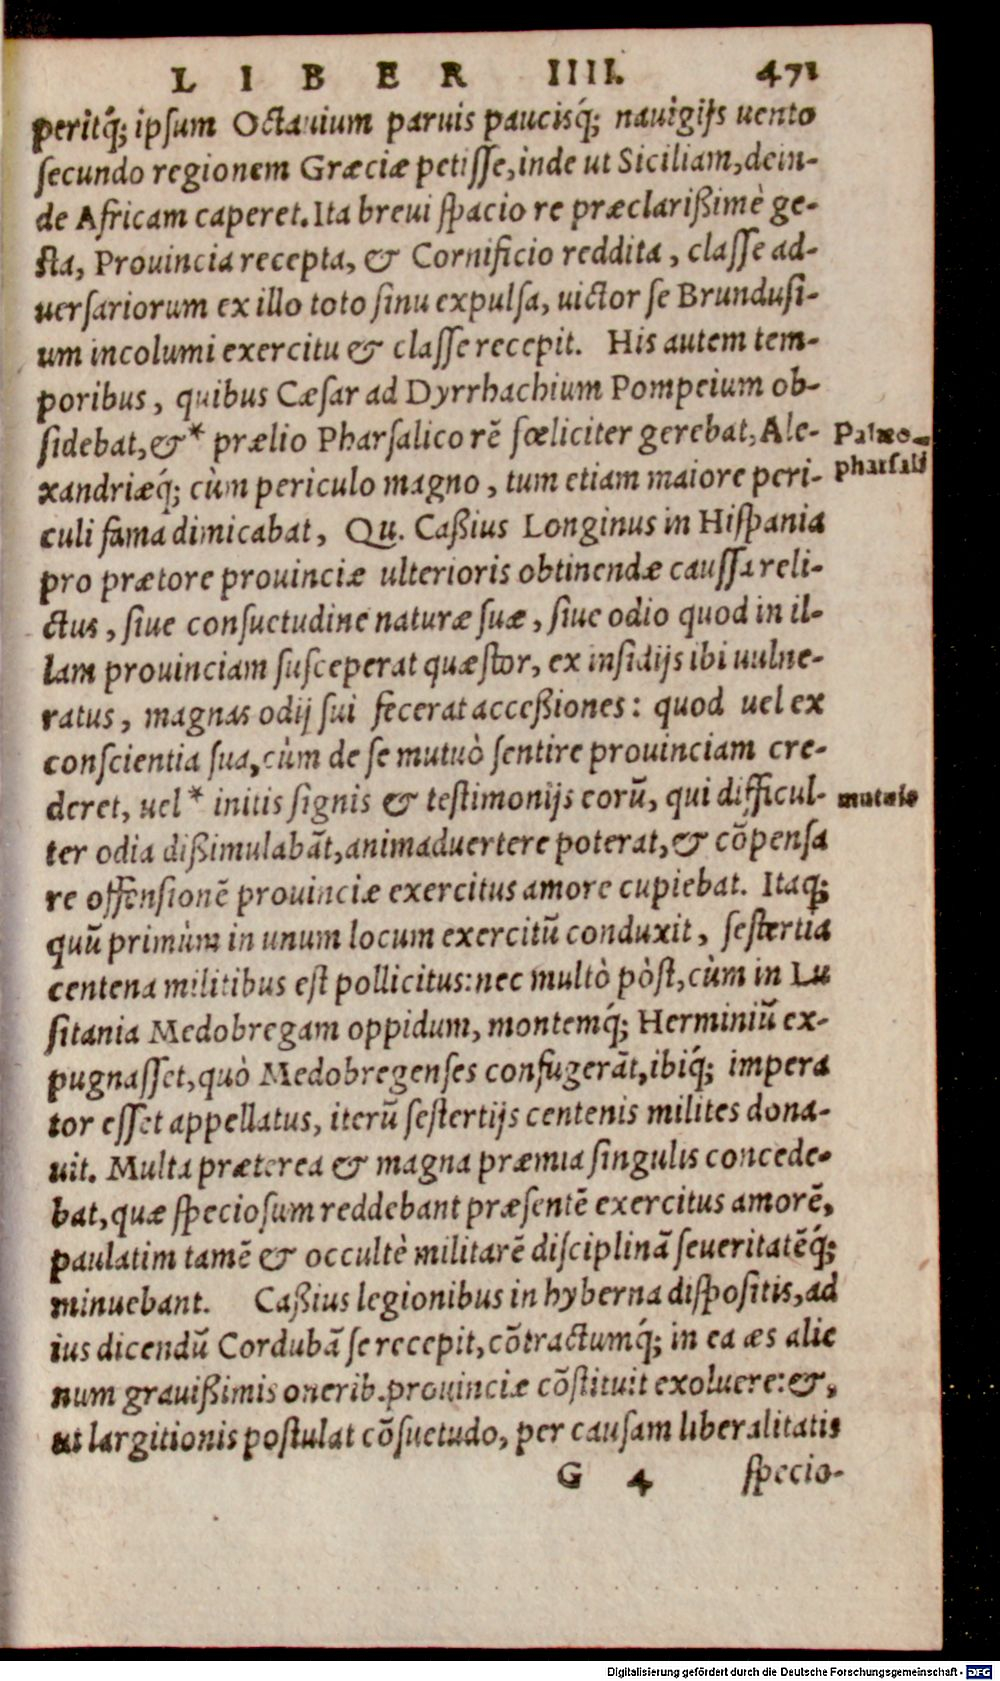 LIBER IIII. 471
peritq́; ipſum Octauium paruis paucisq́; nauigijs uento
ſecundo regionem Græciæ petiſſe, inde ut Siciliam, dein-
de Africam caperet. Ita breui ſpacio re præclarißimè ge-
ſta, Prouincia recepta, & Cornificio reddita, claſſe ad-
uerſariorum ex illo toto ſinu expulſa, uictor ſe Brunduſi-
um incolumi exercitu & claſſe recepit. His autem tem-
poribus, quibus Cæſar ad Dyrrhachium Pompeium ob-
ſidebat, &* prælio Pharſalico rē fœliciter gerebat, Ale-
Palæo-
xandriæq́; cùm periculo magno, tum etiam maiore peri-
pharſali
culi fama dimicabat, Qu. Caßius Longinus in Hiſpania
pro prætore prouinciæ ulterioris obtinendæ cauſſa reli-
ctus, ſiue conſuetudine naturæ ſuæ, ſiue odio quod in il-
lam prouinciam ſuſceperat quæſtor, ex inſidijs ibi uulne-
ratus, magnas odij ſui fecerat acceßiones: quod uel ex
conſcientia ſua, cùm de ſe mutuò ſentire prouinciam cre-
deret, uel* initis ſignis & teſtimonijs eorū, qui difficul-
ter odia dißimulabāt, animaduertere poterat, & cōpenſa
re offenſionē prouinciæ exercitus amore cupiebat. Itaq;
quū primùm in unum locum exercitū conduxit, ſeſtertia
centena militibus eſt pollicitus: nec multò pòſt, cùm in Lu
ſitania Medobregam oppidum, montemq́; Herminiū ex-
pugnaſſet, quò Medobregenſes confugerāt, ibiq́; impera
tor eſſet appellatus, iterū ſeſtertijs centenis milites dona-
uit. Multa præterea & magna præmia ſingulis concede-
bat, quæ ſpecioſum reddebant præſentē exercitus amorē,
paulatim tamē & occultè militarē diſciplinā ſeueritatēq́;
minuebant. Caßius legionibus in hyberna diſpoſitis, ad
ius dicendū Cordubā ſe recepit, cōtractumq́; in ea æs alie
num grauißimis onerib. prouinciæ cōſtituit exoluere: &,
ut largitionis poſtulat cōſuetudo, per cauſam liberalitatis
G 4 ſpecio-
Digitalisierung gefördert durch die Deutsche Forschungsgemeinschaft - DFG